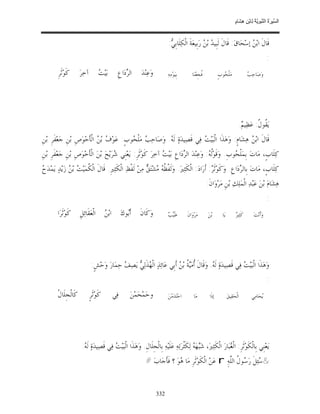 السِّيرَةُ النَّبَوِيَّةُ لابْنِ هِشَامٍ
قَالَ ابْنُ إسْحَاقَ. قَالَ لَبِيدُ بْنُ رَبِيعَةَ الْكِلَابِيُّ
:
وَصَاحِبُ مَلْحُوبٍ فُجِعْنَا بِيَوْمِهِ وَعِنْدَ الرَّدَاعِ بَيْتُ آخَرَ كَوْثَرِ
يَقُولُ: عَظِيمٌ.
قَالَ ابْنُ هِشَامٍ: وَهَذَا الْبَيْتُ فِي قَصِيدَةٍ لَهُ. وَصَاحِبُ مَلْحُوبٍ: عَوْفُ بْنُ الْأَحْوَصِ بْنِ جَعْفَرِ بْنِ
كِلَابٍ، مَاتَ بِمَلْحُوبٍ. وَقَوْلُهُ: وَعِنْدَ الرَّدَاعِ بَيْتُ آخَرَ كَوْثَرِ: يَعْنِي شُرَيْحَ بْنَ الْأَحْوَصِ بْنِ جَعْفَرِ بْنِ
كِلَابٍ، مَاتَ بِالرَّدَاعِ. وَكَوْثَرٌ: أَرَادَ: الْكَثِيرَ. وَلَفْظُهُ مُشْتَقٌّ مِنْ لَفْظِ الْكَثِيرِ. قَالَ الْكُمَيْتُ بْنُ زَيْدٍ يَمْدَحُ
هِشَامَ بْنَ عَبْدِ الْمَلِكِ بْنِ مَرْوَانَ:
:
وَأَنْتَ كَثِيرٌ يَا بْنَ مَرْوَانَ طَيِّبٌ وَكَانَ أَبُوكَ ابْنُ الْعَقَائِلِ كَوْثَرَا
وَهَذَا الْبَيْتُ فِي قَصِيدَةٍ لَهُ. وَقَالَ أُمَيَّةُ بْنُ أَبِي عَائِذٍ الْهُذَلِيُّ يَصِفُ حِمَارَ وَحْشٍ
:
يُحَامِي الْحَقِيقَ إذَا مَا احْتَدَمْنَ وحَمْحَمْنَ فِي كَوْثَرٍ كَالْجِلَالْ
يَعْنِي بِالْكَوْثَرِ: الْغُبَارَ الْكَثِيرَ، شَبَّهَهُ لِكَثْرَتِهِ عَلَيْهِ بِالْجِلَالِ. وَهَذَا الْبَيْتُ فِي قَصِيدَةٍ لَهُ
سُئِلَ رَسُولُ اللَّهِ عَنْ الْكَوْثَرِ مَا هُوَ ؟ فَأَجَابَ
332